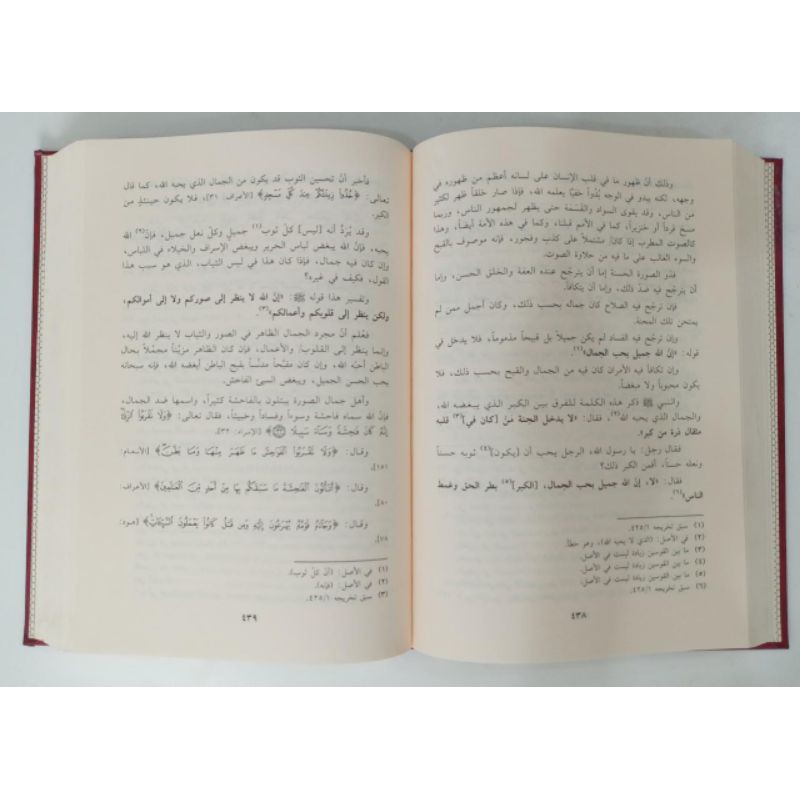 وذلك أنّ ظهور ما في قلب الإنسان على لسانه أعظم من ظهوره في
وجهه، لكنه يبدو في الوجه بُدُوّاً خفيّاً يعلمه الله، فإذا صار خلقاً ظهر لكثير
من الناس، وقد يقوى السواد والقَسَمَة حتى يظهر لجمهور الناس، وربما
مسخ قرداً أو خنزيراً، كما في الأمم قبلنا، وكما في هذه الأمة أيضاً، وهذا
كالصوت المطرب إذا كان مشتملاً على كذب وفجور، فإنه موصوف بالقبح
والسوء الغالب على ما فيه من حلاوة الصوت.
فذو الصورة الحسنة إما أن يترجّح عنده العفة والخلق الحسن، وإما
أن يترجّح فيه ضدّ ذلك، وإما أن يتكافآ.
فإن ترجّح فيه الصلاح كان جماله بحسب ذلك، وكان أجمل ممن لم
يمتحن تلك المحنة.
وإن ترجّح فيه الفساد لم يكن جميلاً بل قبيحاً مذموماً، فلا يدخل في
قوله: «إنّ الله جميل يحب الجمال»(١).
وإن تكافأ فيه الأمران كان فيه من الجمال والقبح بحسب ذلك، فلا
يكون محبوباً ولا مبغضاً.
والنبي ﷺ ذكر هذه الكلمة للفرق بين الكبر الذي يبغضه الله،
والجمال الذي يحبه الله(٢)، فقال: «لا يدخل الجنة مَنْ [كان في](٣) قلبه
مثقال ذرة من كبر».
فقال رجل: يا رسول الله، الرجل يحب أن [يكون](٤) ثوبه حسناً
ونعله حسناً، أفمن الكبر ذلك؟
فقال: «لا، إنّ الله جميل يحب الجمال، [الكبر](٥) بطر الحق وغمط
الناس»(٦).
(١) سبق تخريجه ٤٢٥/١.
(٢) في الأصل: (الذي لا يحبه الله)، وهو خطأ.
(٣) ما بين القوسين زيادة ليست في الأصل.
(٤) ما بين القوسين زيادة ليست في الأصل.
(٥) ما بين القوسين زيادة ليست في الأصل.
(٦) سبق تخريجه ٤٢٥/١.
٤٣٨
فأخبر أنّ تحسين الثوب قد يكون من الجمال الذي يحبه الله، كما قال
تعالى: ﴿خُذُوا زِينَتَكُمْ عِندَ كُلِّ مَسْجِدٍ﴾ [الأعراف: ٣١]، فلا يكون حينئذٍ من
الكبر.
وقد يُرَدّ أنه [ليس] كلّ ثوب(١) جميلٍ وكلّ نعل جميل، فإنّ(٢) الله
يحبه، فإنّ الله يبغض لباس الحرير ويبغض الإسراف والخيلاء في اللباس،
وإن كان فيه جمال، فإذا كان هذا في لبس الثياب، الذي هو سبب هذا
القول، فكيف في غيره؟
وتفسير هذا قوله ﷺ: «إنّ الله لا ينظر إلى صوركم ولا إلى أموالكم،
ولكن ينظر إلى قلوبكم وأعمالكم»(٣).
فعُلم أنّ مجرد الجمال الظاهر في الصور والثياب لا ينظر الله إليه،
وإنما ينظر إلى القلوب والأعمال، فإن كان الظاهر مزيّناً مجمّلاً بحال
الباطن أحبّه الله، وإن كان مقبّحاً مدنّساً بقبح الباطن أبغضه الله، فإنه سبحانه
يحب الحسن الجميل، ويبغض السيئ الفاحش.
وأهل جمال الصورة يبتلون بالفاحشة كثيراً، واسمها ضد الجمال،
فإنّ الله سماه فاحشة وسوءاً وفساداً وخبيثاً، فقال تعالى: ﴿وَلَا تَقْرَبُوا الزِّنَى
إِنَّهُ كَانَ فَاحِشَةً وَسَاءَ سَبِيلًا ۝٣٢﴾ [الإسراء: ٣٢].
وقال: ﴿وَلَا تَقْرَبُوا الْفَوَاحِشَ مَا ظَهَرَ مِنْهَا وَمَا بَطَنَ﴾ [الأنعام:
١٥١].
وقال: ﴿أَتَأْتُونَ الْفَاحِشَةَ مَا سَبَقَكُم بِهَا مِنْ أَحَدٍ مِّنَ الْعَالَمِينَ﴾ [الأعراف:
٨٠].
وقال: ﴿وَجَاءَهُ قَوْمُهُ يُهْرَعُونَ إِلَيْهِ وَمِن قَبْلُ كَانُوا يَعْمَلُونَ السَّيِّئَاتِ﴾ [هود:
٧٨].
(١) في الأصل: (أنّ كلّ ثوب).
(٢) في الأصل: (فإنه).
(٣) سبق تخريجه ٤٢٥/١.
٤٣٩